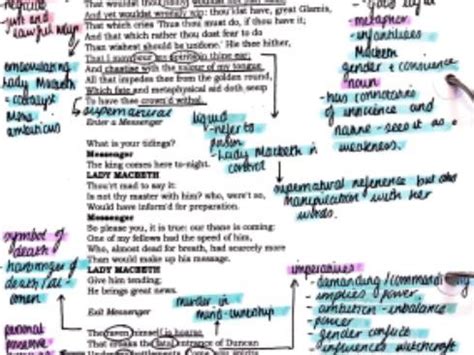 That wouldst thou holily; wouldst not play false,
And yet wouldst wrongly win: thou'dst have, great Glamis,
That which cries 'Thus thou must do, if thou have it;
And that which rather thou dost fear to do
Than wishest should be undone.' Hie thee hither,
That I may pour my spirits in thine ear,
And chastise with the valour of my tongue
All that impedes thee from the golden round,
Which fate and metaphysical aid doth seem
To have thee crown'd withal.
Enter a Messenger
What is your tidings?
Messenger
The king comes here to-night.
LADY MACBETH
Thou'rt mad to say it:
Is not thy master with him? who, were't so,
Would have inform'd for preparation.
Messenger
So please you, it is true: our thane is coming:
One of my fellows had the speed of him,
Who, almost dead for breath, had scarcely more
Than would make up his message.
LADY MACBETH
Give him tending;
He brings great news.
Exit Messenger
The raven himself is hoarse
That croaks the fatal entrance of Duncan
Under
just and
lawful way
emasculating
Lady Macbeth
- catalyst
ambitious
supernatural
liquid
- refer to
poison
- Lady Macbeth in
control
- metaphor
- infantilises
Macbeth
gender + conscience
noun
- has connotations
of innocence and
naive - sees it as
weakness.
supernatural reference but also
manipulation with her
words.
symbol of
death
- harbinger of
death/an
omen
personal
pronoun
murder in
mind - ownership
imperatives
- demanding/commanding
- implies power
- ambition - imbalance
- power
- gender conflict
- influences witchcraft